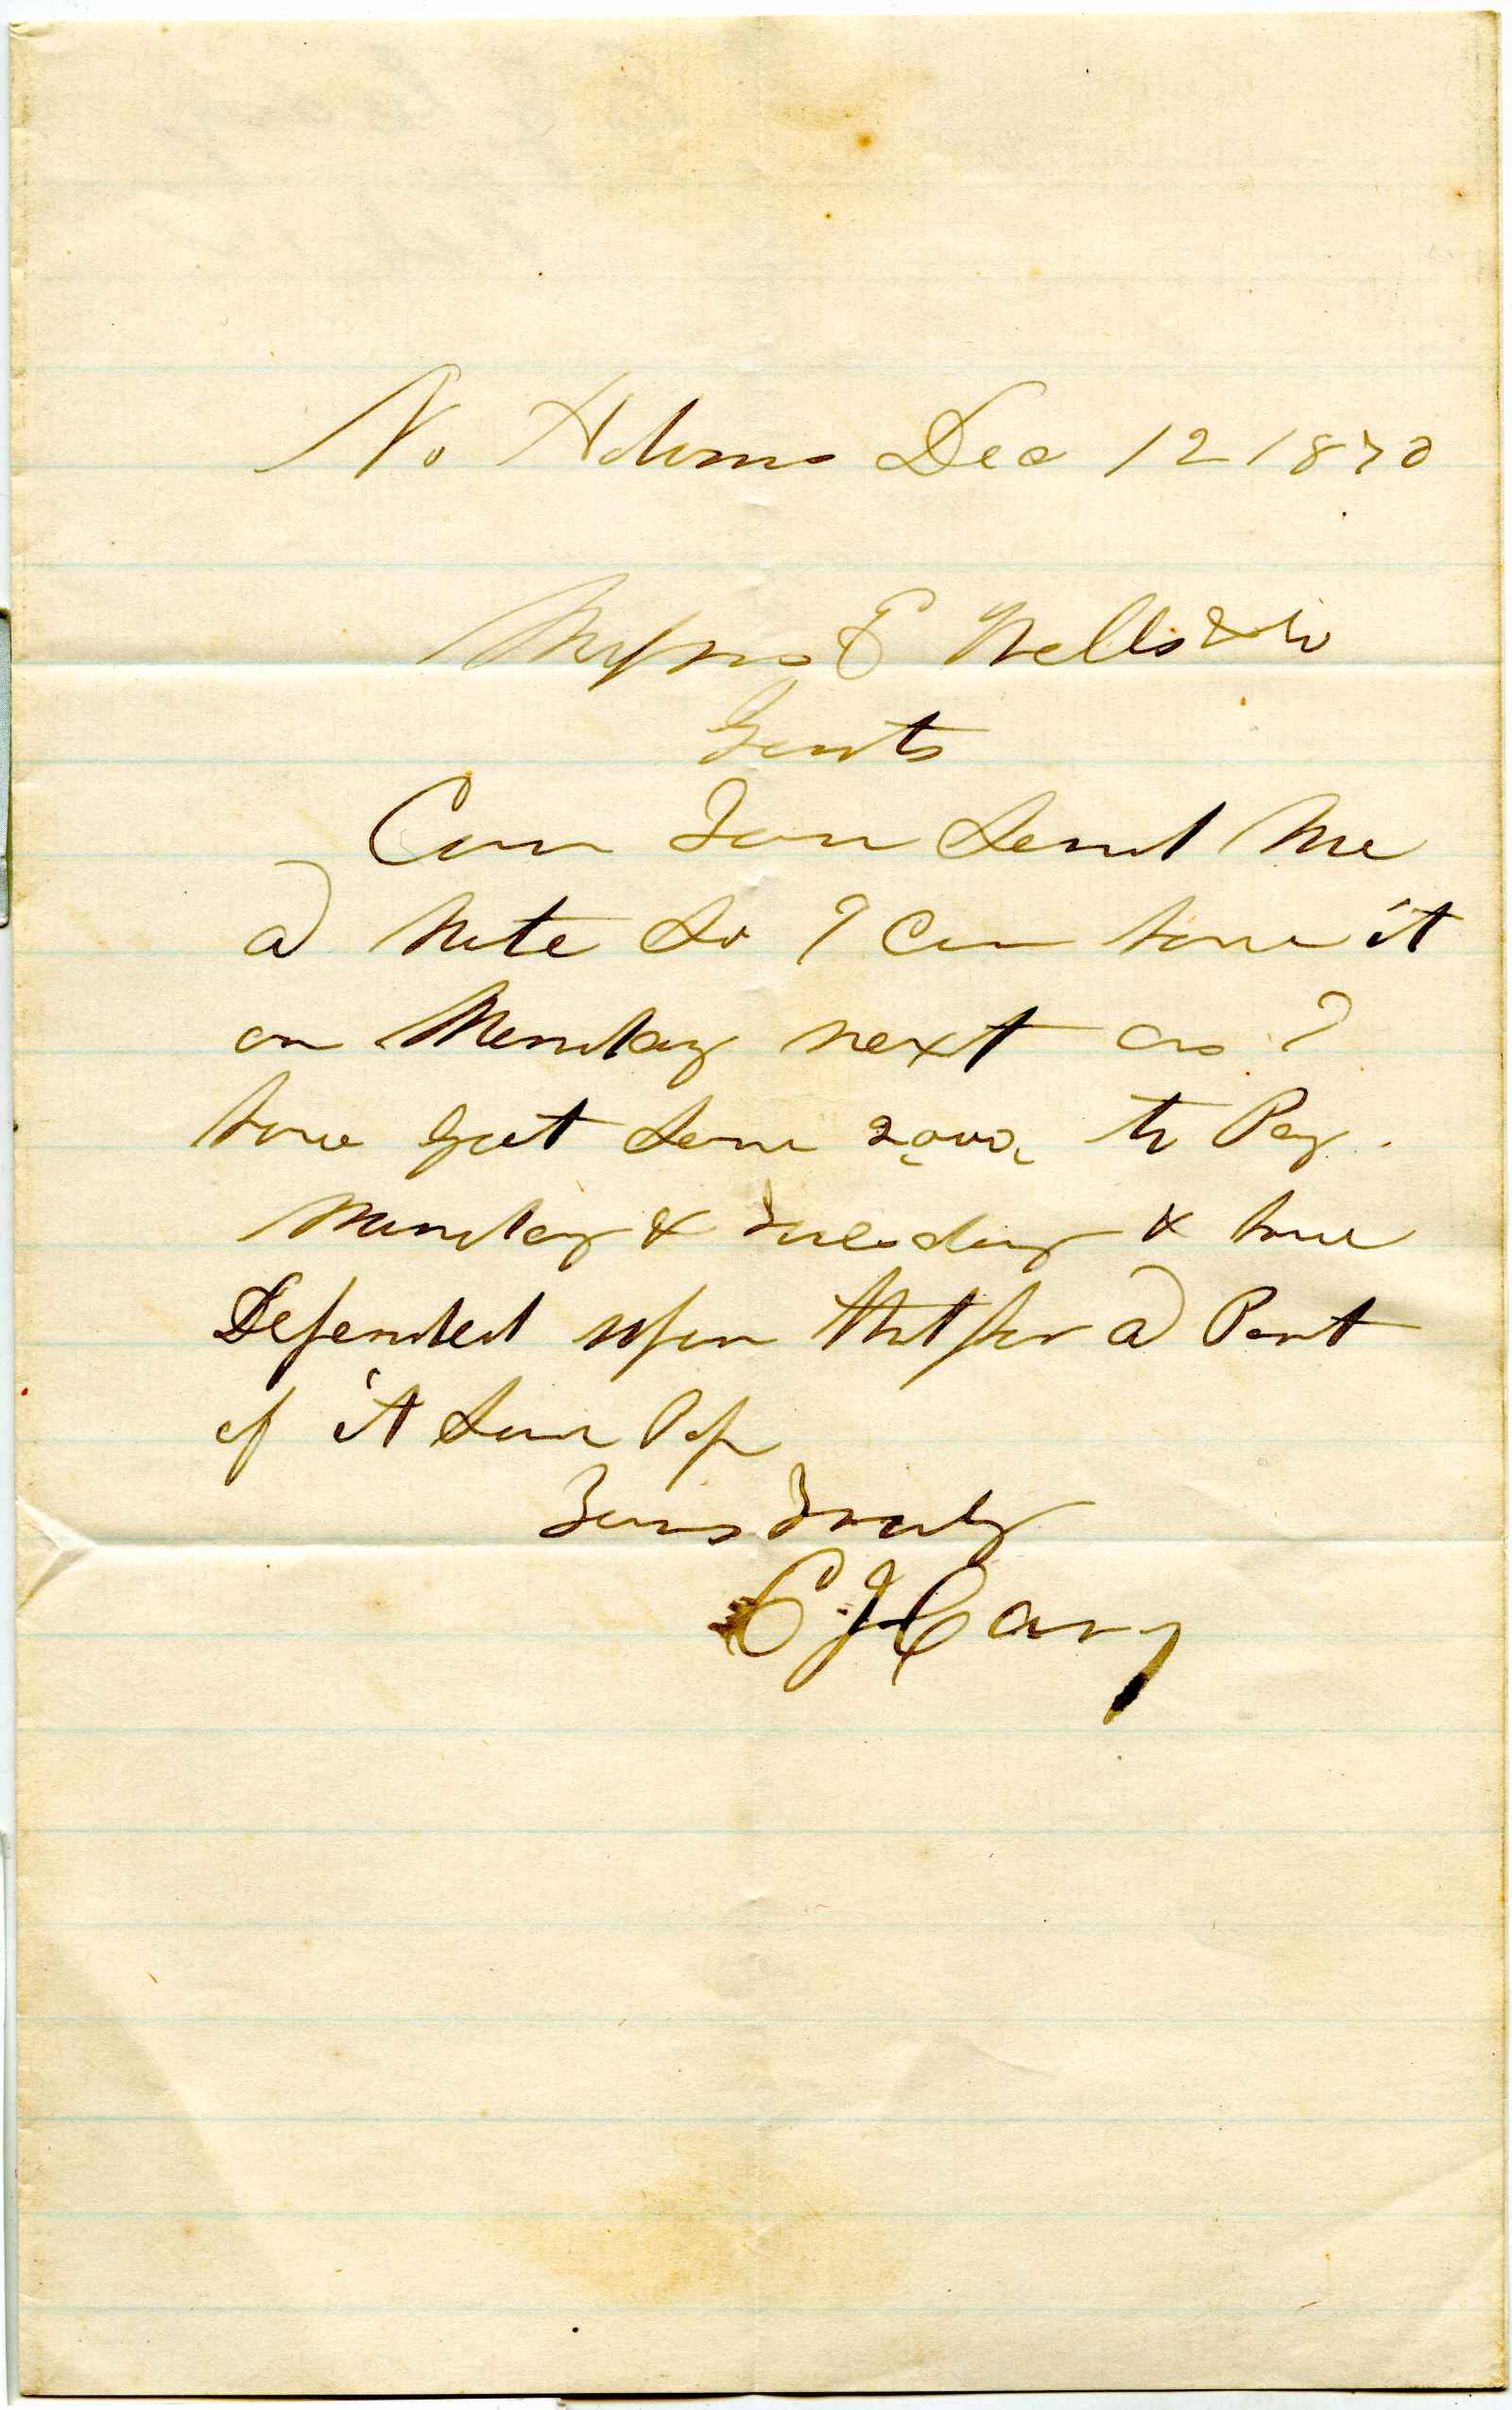 No Adams Dec 12 1870
Messrs E Wells & Co
Gents
Can You Send Me
a Note So I Can have it
on Monday next as I
have got Some 2,000, to Pay
Monday & Tuesday & have
Depended upon that for a Part
of it
Yours Truly
C J Cary